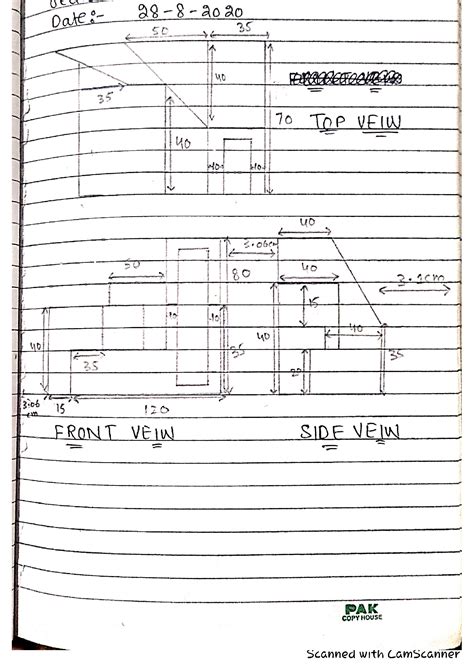 Date:- 28-8-2020
50 35
40
35
70 TOP VEIW
40
10 10
40
3.06cm
50 80 40 3.1cm
15
10 10 40
40 35 40 35
35 20
3.06 cm 15 120
FRONT VEIW SIDE VEIW
PAK
COPY HOUSE
Scanned with CamScanner